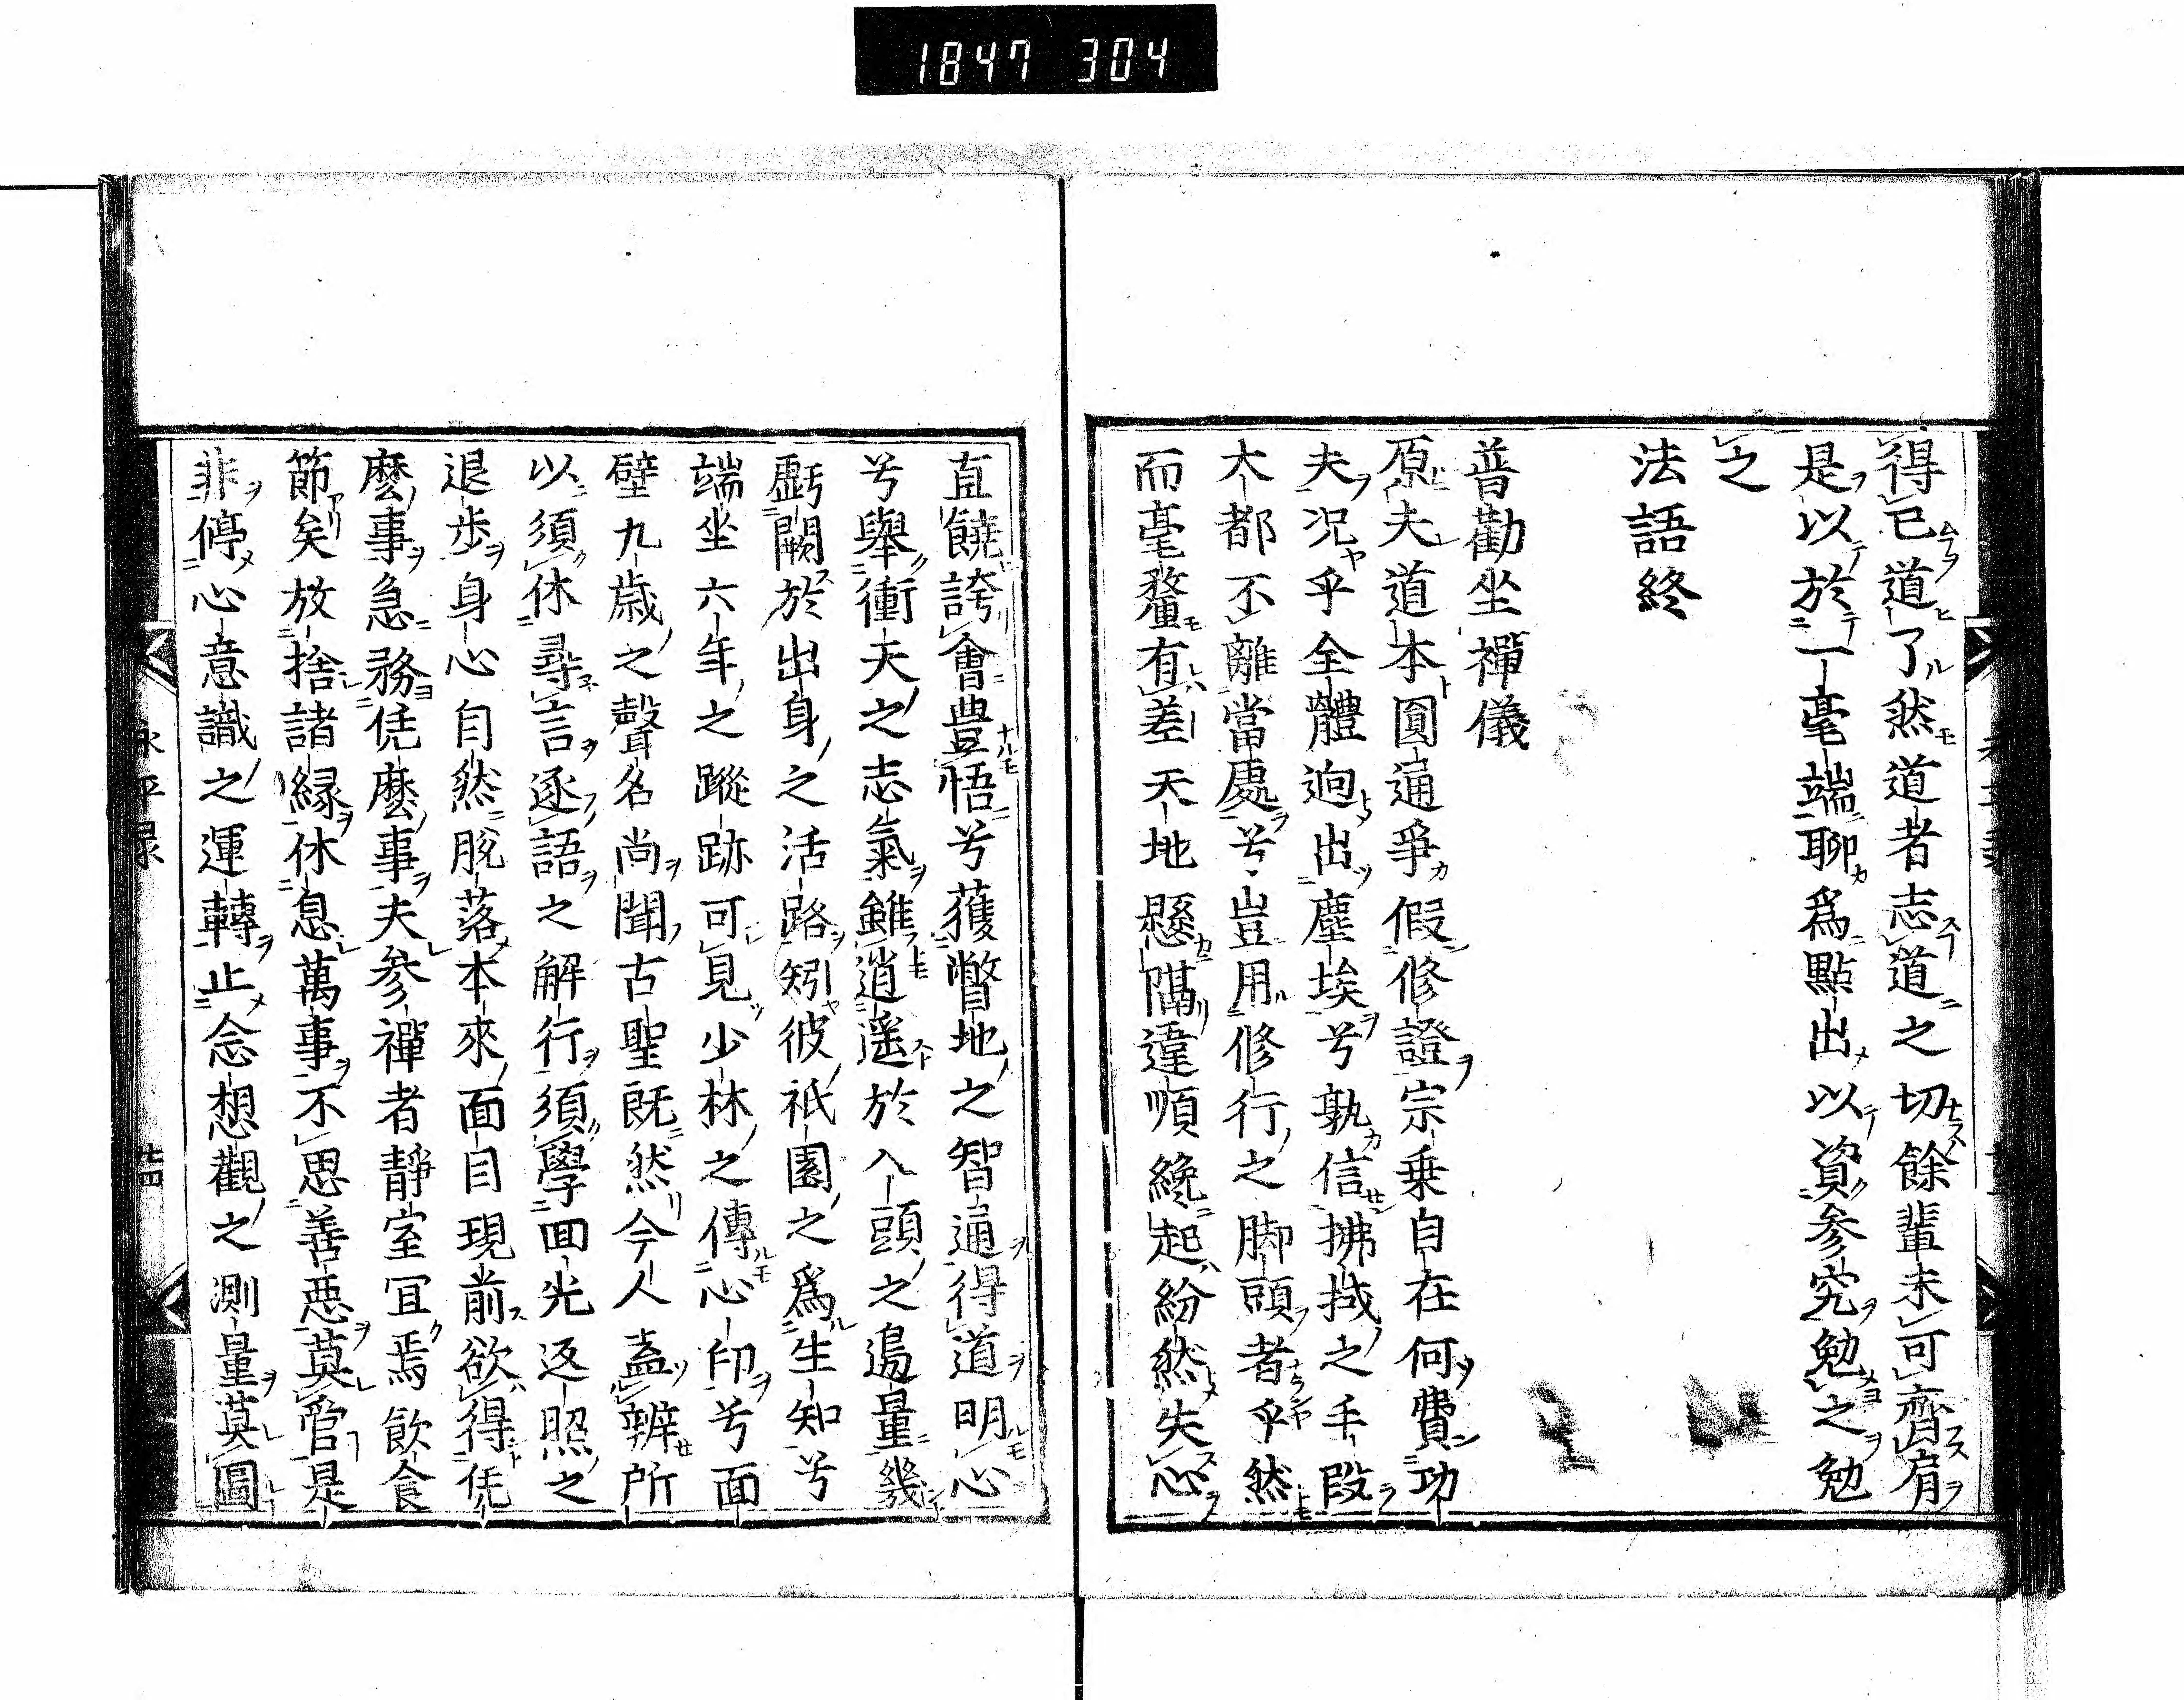 1847 304
得已道了然道者志道之切餘輩未可齊肩
是以於一毫端聊爲點出以資参究勉之勉
之
法語終
普勸坐禪儀
原夫道本圓通爭假修證宗乗自在何費功
夫况乎全體逈出塵埃兮孰信拂拭之手段
大都不離當處兮豈用修行之脚頭者乎然
而毫釐有差天地懸隔違順纔起紛然失心
直饒誇會豊悟兮獲瞥地之智通得道明心
兮擧衝天之志氣雖逍遥於入頭之邉量幾
虧闕於出身之活路矧彼祇園之爲生知兮
端坐六年之蹤跡可見少林之傳心印兮面
壁九歳之聲名尚聞古聖既然今人盍辨所
以須休尋言逐語之解行須學囬光返照之
退歩身心自然脱落本來面目現前欲得恁
麼事急務恁麼事夫参禪者靜室冝焉飲食
節矣放捨諸縁休息萬事不思善惡莫管是
非停心意識之運轉止念想觀之測量莫圖
永平録 廿四